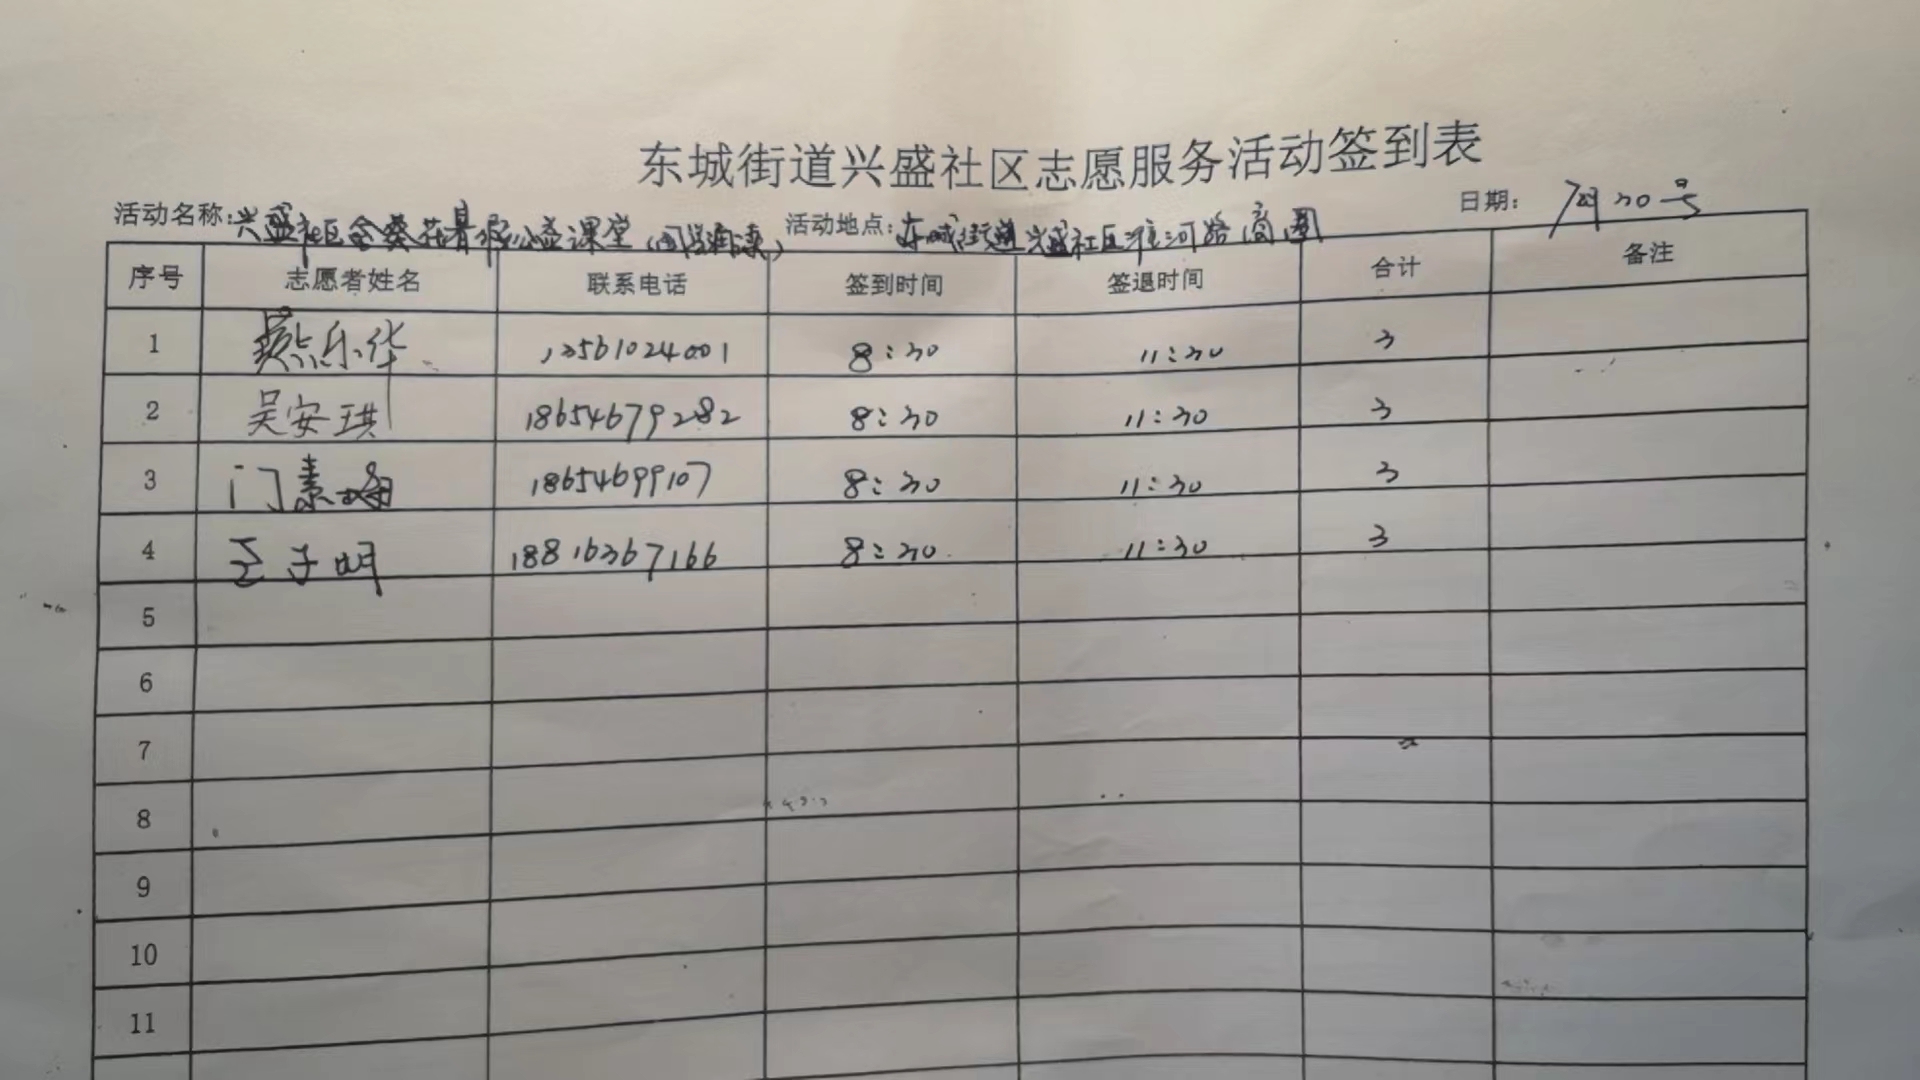 东城街道兴盛社区志愿服务活动签到表
活动名称:兴盛社区金葵花暑假公益课堂 活动地点:东城街道兴盛社区淮河路商圈 日期: 7月30号
序号 志愿者姓名 联系电话 签到时间 签退时间 合计 备注
1 13561024001 8:30 11:30 3
2 吴安琪 18654679282 8:30 11:30 3
3 门素梅 18654699107 8:30 11:30 3
4 王子明 18816367166 8:30 11:30 3
5
6
7
8
9
10
11